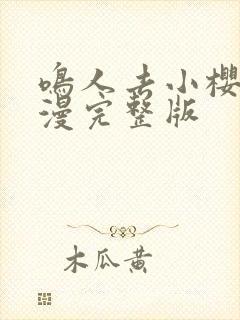 鳴人去小櫻
漫完整版
木瓜黄